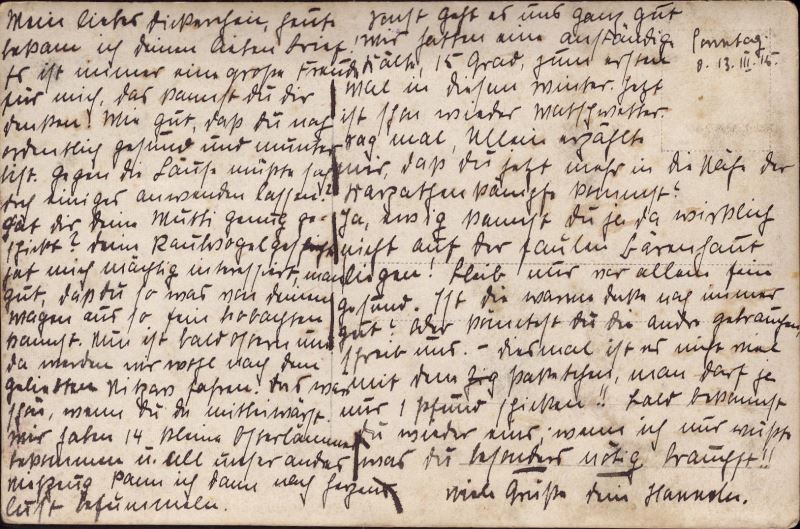 Mein liebes Dickerchen, heute
bekam ich deinen lieben Brief!
Es ist immer eine große Freude
für mich, das kannst du dir
denken! Wie gut, daß du noch
ordentlich gesund und munter
bist. Gegen die Läuse müßte ja
sich einiges anwenden lassen?
Hat dir deine Mutti genug ge-
schickt? Deine Raubvogelgeschichte
hat mich mächtig interessiert,
gut, daß du so was von deinem
Wagen aus so fein beobachten
kannst. Nun ist bald Ostern und
da werden wir wohl nach dem
geliebten fahren. Das wär
schön, wenn du da mitkämst.
Wir haben 14 kleine Osterlämmer
bekommen u. all unser andres
kann ich dann nach Herzens
lust befummeln.
Sonntag.
d. 13. III.
Sonst geht es uns ganz gut
wir hatten eine anständige
Kälte, 15 Grad, zum ersten
Mal in diesem Winter. Jetzt
ist schon wieder Matschwetter.
Sag mal, erzählte
mir, daß du jetzt mehr in die Nähe der
Karpathenkämpfe kommst?
Ja, ewig kannst du ja da wirklich
nicht auf der faulen Bärenhaut
liegen! Bleib nur vor allem fein
gesund. Ist die warme Decke noch immer
gut? Oder könntest du die andre gebrauchen,
schreib uns. – Diesmal ist es nicht viel
mit dem Paketchen, man darf ja
nur 1 Pfund schicken!! Bald bekommst
du wieder eins; wenn ich nur wüßte
was du besonders nötig brauchst!!
Viele Grüße dein Hannele.